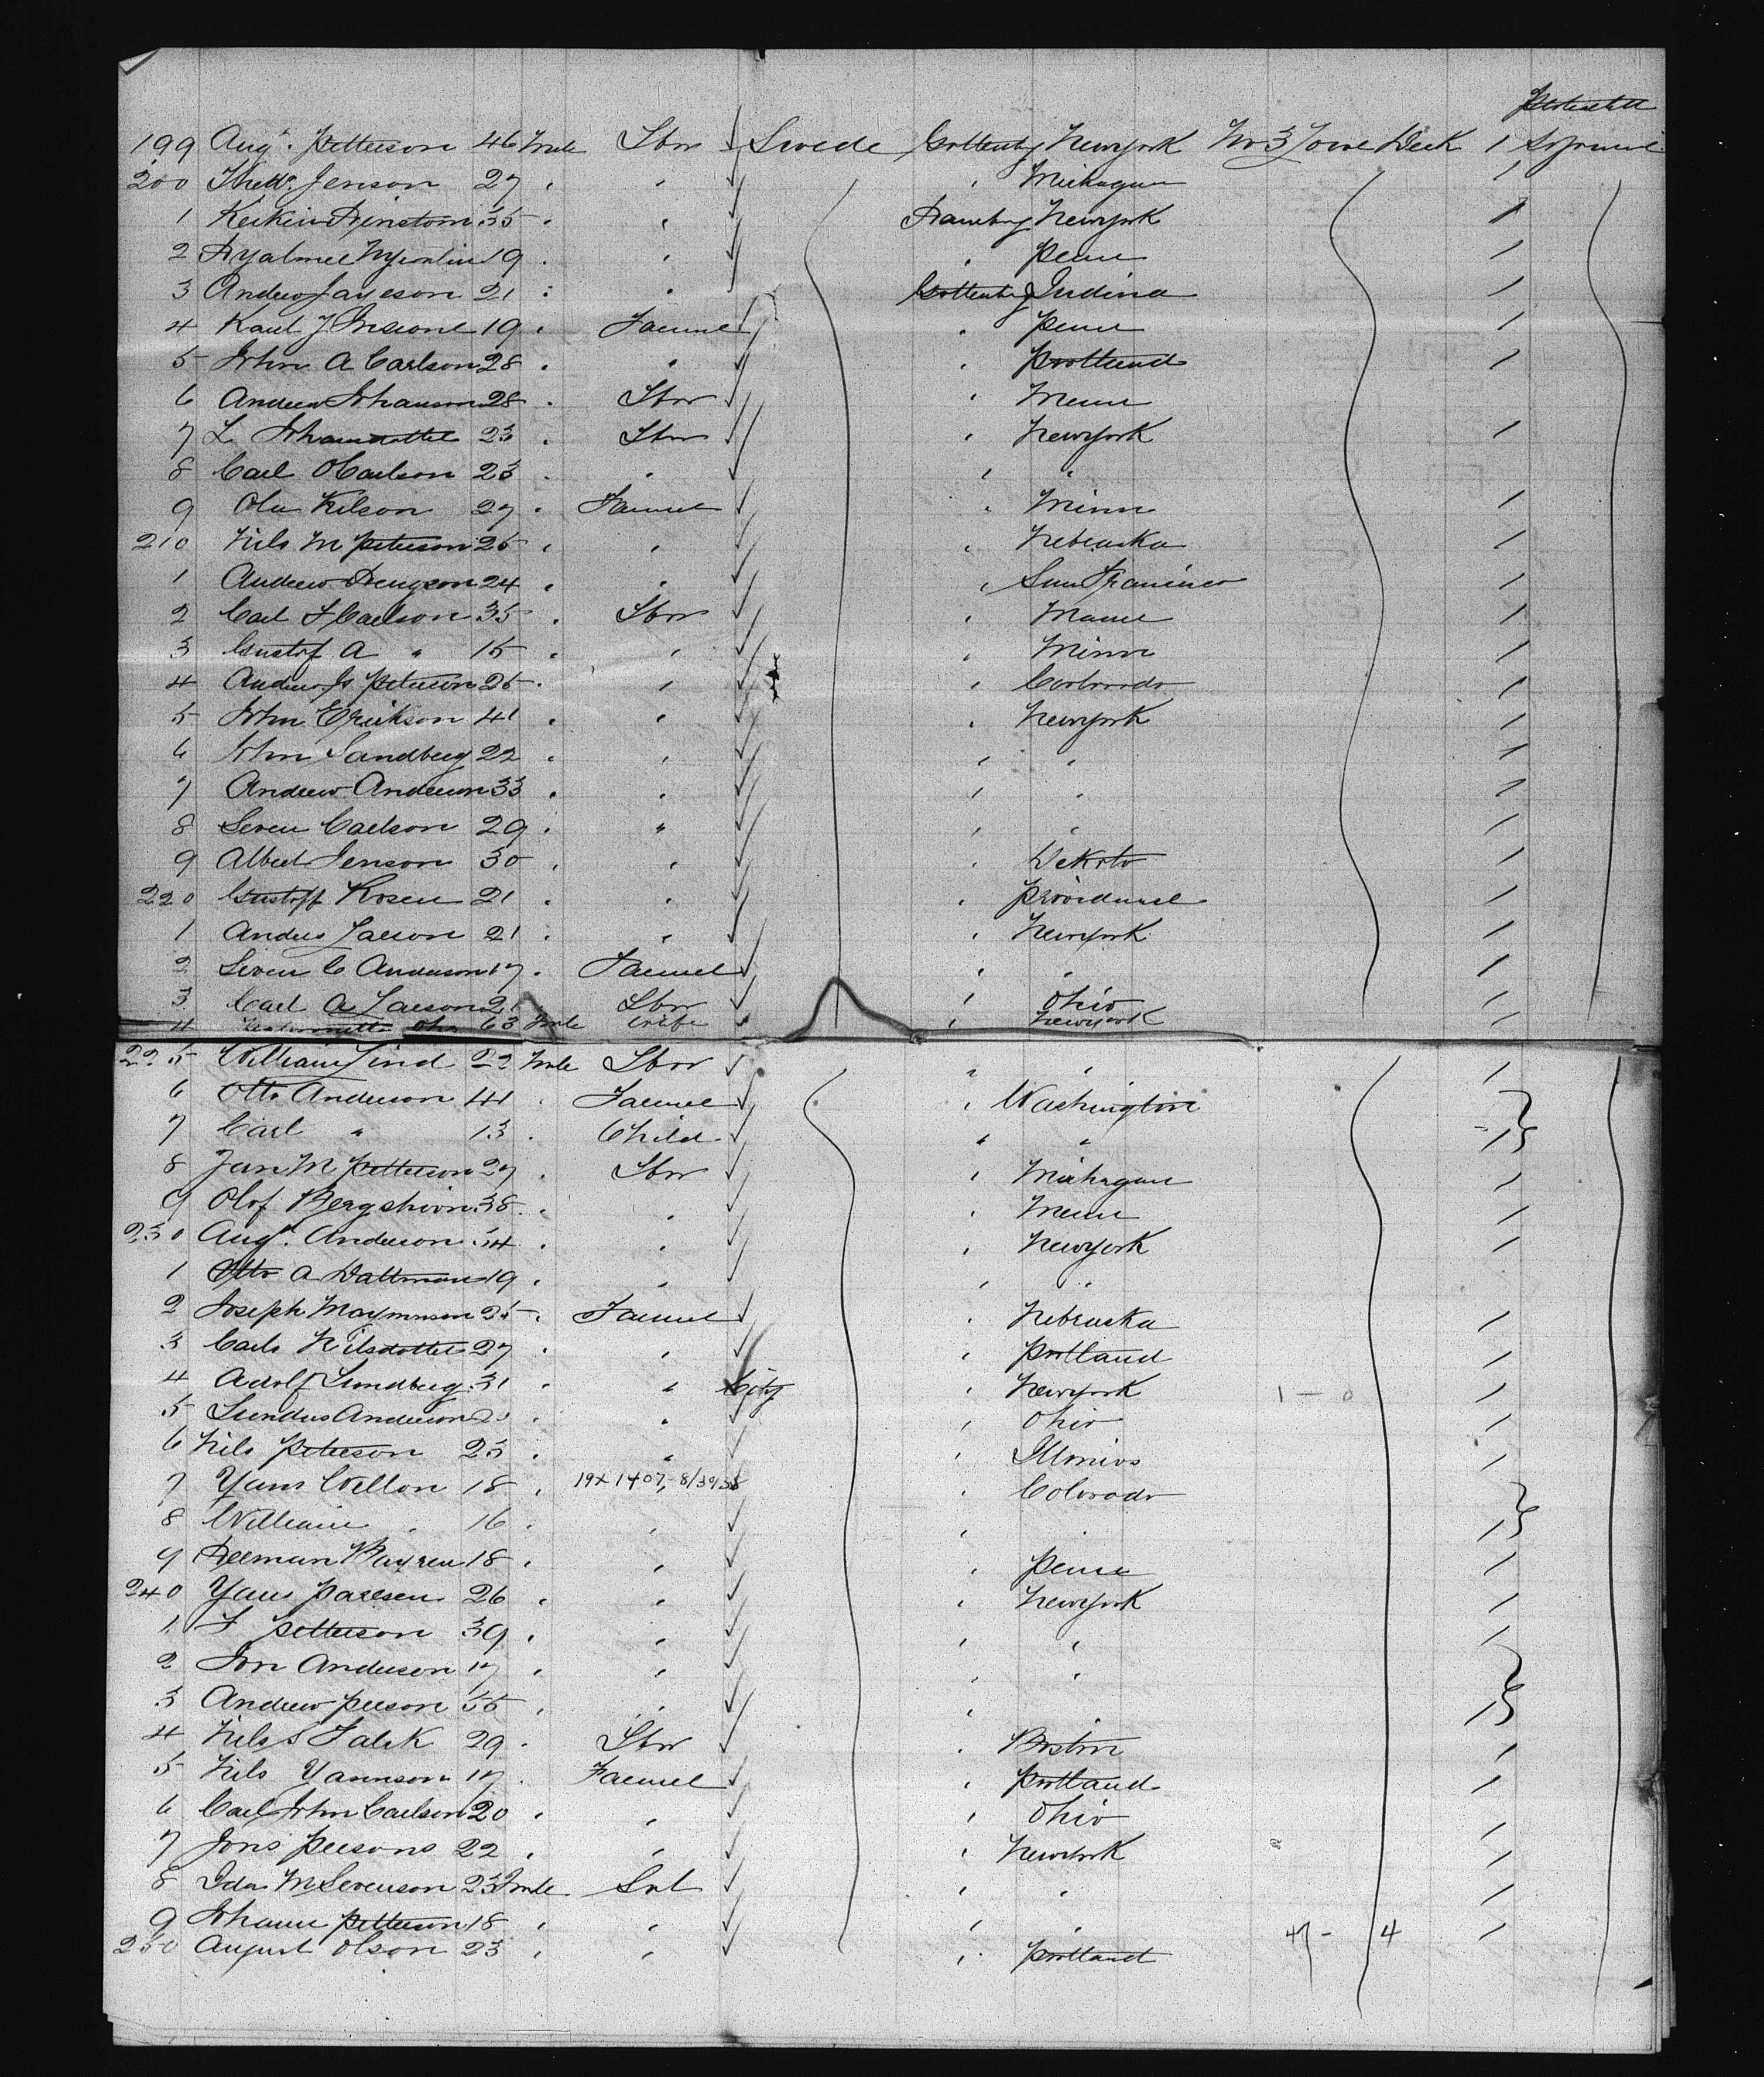 Protracted
199 Aug. Petterson 46 Male Lbr Swede Gottenby Newyork No 3 Lowe Deck 1
200 Jenson 27 " " " Michagan 1
1 35 " " Newyork 1
2 19 " " " Penn 1
3 Andrew 21 " " Gottenby Indina 1
4 Karl J 19 " Farmer " Penn 1
5 John A Carlson 28 " " " Portland 1
6 Andrew Johanson 28 " Lbr " Menn
7 L Johansdotter 23 " Lbr " Newyork 1
8 Carl O Carlson 23 " " " "
9 Ola Nilson 27 " Farmer " Minn 1
210 Nils M Peterson 25 " " " Nebraska 1
1 Andrew 24 " " " San Francisco 1
2 Carl F Carlson 35 " Lbr " 1
3 Gustof A " 15 " " " Minn 1
4 Andrew Js Peterson 25 " " " Colorado 1
5 John Erickson 41 " " " Newyork 1
6 John Sandberg 22 " " " " 1
7 Andrew Anderson 33 " " " " 1
8 Seven Carlson 29 " " " " 1
9 Albert Jenson 30 " " " Dekoto 1
220 Gustoff Rosen 21 " " " Providence 1
1 Andres Larson 21 " " " Newyork 1
2 Seven C Anderson 17 " Farmer " " 1
3 Carl A Larson 21 " Lbr " Ohio 1
4 63 Wife " Newyork 1
225 William Lind 22 Male Lbr " " 1
6 Otto Anderson 41 " Farmer " Washington
7 Carl " 13 " Child " " 1
8 Jan M Petterson 27 " Lbr " Michagan 1
9 Olof 38 " " " Menn 1
230 Aug. Anderson 34 " " " Newyork 1
1 Otto A Waltman 19 " " " "
2 Joseph 25 " Farmer " Nebraska 1
3 Carls Nilsdotter 27 " " " Portland 1
4 Adolf Lundberg 31 " " City " Newyork 1 — 0 1
5 Anderson " " " Ohio 1
6 Nils Peterson 23 " " " Illonios 1
7 Yans Wellon 18 " 19x1407, 8/30/38 " Colorado
8 William " 16 " " " " 1
9 18 " " " Penn 1
240 Yans 26 " " " Newyork 1
1 F Petterson 39 " " " " 1
2 Jon Anderson 17 " " " "
3 Andrew Peerson 55 " " " " 1
4 Nils S Falek 29 " Lbr " Boston 1
5 Nils Yannson 17 " Farmer " Portland 1
6 Carl John Carlson 20 " " " Ohio 1
7 Jons Peersons 22 " " " Newyork 1
8 Ida M Sevenson 23 Fmle Svt " " 1
9 Petterson 18 " " " " 47 - 4 1
250 August Olson 23 " " " Portland